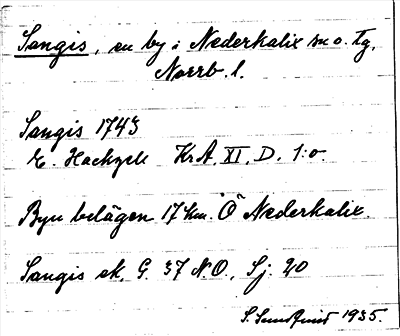 Sangis, en by i Nederkalix sn o. tg,
Norrb. l.
Sangis 1743
E. Hackzell KrA, XI, D. 1:o.
Byn belägen 17 km. Ö Nederkalix.
Sangis ek. G. 37 N.O., Sj. 20
S. Sundquist 1935.